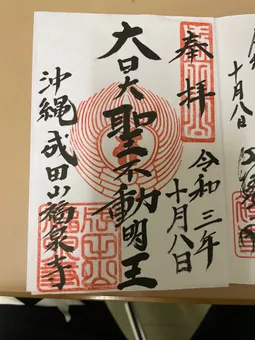 奉拝
令和三年
十月八日
大日大聖不動明王
沖縄成田山福泉寺
十月八日